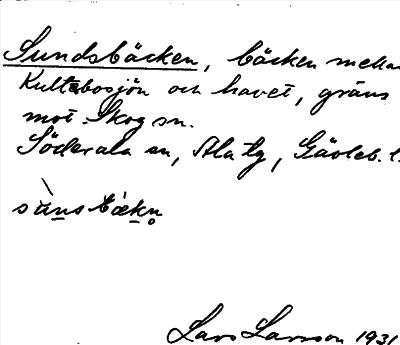 Sundsbäcken, bäcken mellan
Kultebosjön och havet, gräns
mot Skog sn.
Söderala sn, Ala tg, Gävleb. l.
sùnsbækn̥
Lars Larsson 1931